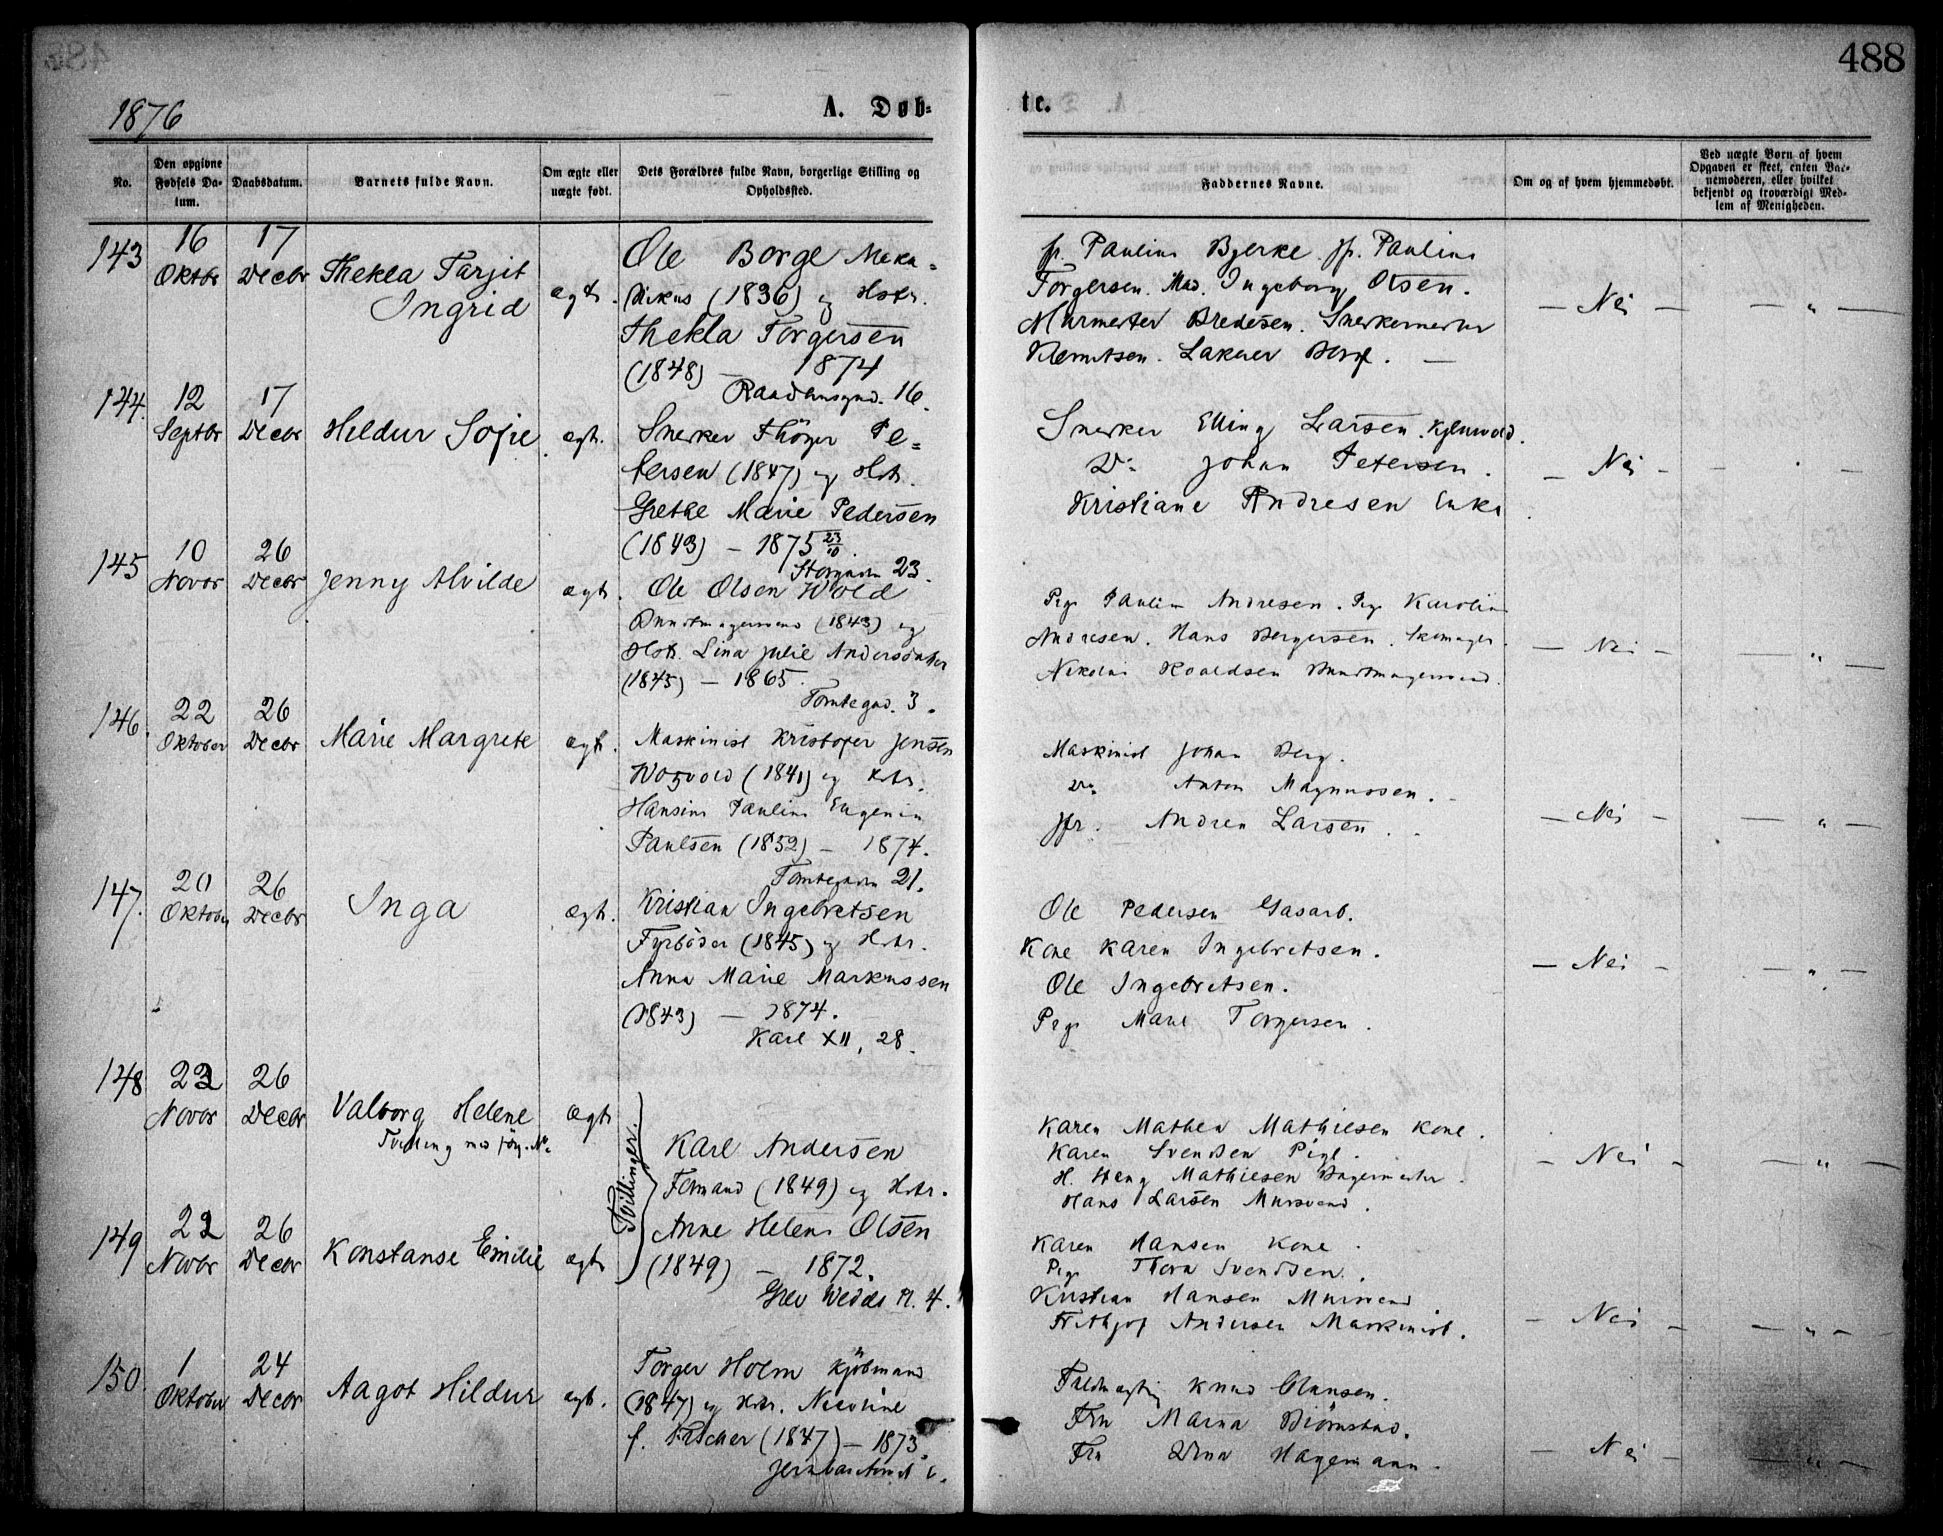 488
1876
A. Døb-
te.
No.
Den opgivne Fødsels Da-tum.
Daabsdatum.
Barnets fulde Navn.
Om ægte eller uægte født.
Dets Forældres fulde Navn, borgerlige Stilling og Opholdssted.
Faddernes Navne.
Om og af hvem hjemmedøbt.
Ved uægte Børn af hvem Opgaven er skeet, enten Bar-nemoderen, eller hvilket bekjendt og troværdigt Med-lem af Menigheden.
143
16 Oktbr
17 Decbr
Thekla Tarjit
Ingrid
ægt.
Ole Borge Meka-
nikus (1836) og Hstr.
Thekla Torgersen
(1848) — 1874
16.
fr. Pauline Bjerke. jfr. Pauline
Torgersen. Mad. Ingeborg Olsen.
Murmester Bredesen. Snekermester
— Nei — — " —
144.
12 Septbr
17 Decbr
Hildur Sofie
ægt.
Snerker Thöger Pe-
tersen (1847) og Hstr.
Grethe Marie Pedersen
(1843) — 1875 23/10.
Storgaden 23.
Snerker Elling Larsen
Do Johan Petersen.
Kristiane Andresen Enke
— Nei —
145
10 Novbr
26 Decbr
Jenny Alvilde
ægt.
Ole Olsen Wold
Buntmagersvend (1843) og
Hstr. Lina Julie Andersdatter
(1845) — 1865.
Tomtegad. 3.
Pige Pauline Andresen. Pige Karoline
Andresen. Hans Bergersen. Skomager.
Nikolai Roaldsen Buntmagersvend.
— Nei — — " —
146.
22 Oktober
26 Decbr
Marie Margrete
ægt.
Maskinist Kristofer Jensen
(1841) og Hstr.
Hansine Pauline Eugenia
Paulsen (1852) — 1874.
Tomtegaden 21.
Maskinist Johan Berg.
Do Anton Magnussen.
Jfr. Andrea Larsen.
— Nei — — " —
147.
20 Oktober
26 Decbr
Inga
ægt.
Kristian Ingebretsen
Fyrbøder (1845) og Hstr.
Anne Marie Markussen
(1843) — 1874.
Karl XII, 28.
Ole Pedersen Gasarb.
Kone Karen Ingebretsen.
Ole Ingebretsen.
Pige Marie Torgersen.
— Nei — — " —
148
22 Novbr
26 Decbr
Valborg Helene
Tvilling med følg. No
ægt
Tvillinger.
Karl Andersen
Formand (1849) og Hstr.
Anne Helene Olsen
(1849) — 1872.
Grev Wedels Pl. 4.
Karen Mathea Mathiesen Kone.
Karen Svendsen Pige.
H. Mathiesen
Hans Larsen Mursvend.
— Nei — — " —
149
22 Novbr
26 Decbr
Konstanse Emilie
ægt
Karen Hansen Kone.
Pige Thora Svendsen.
Kristian Hansen Mursvend
Frithjof Andersen Maskinist.
— Nei — — " —
150.
1 Oktober
24 Decbr
Aagot Hildur
ægt.
Torger Holm Kjöbmand
(1847) og Hstr. Nicoline
f. Fischer (1847) — 1873.
Fuldmægtig Knud Clausen.
Fru Marna Björnstad.
Fru Hagemann.
— Nei — — " —